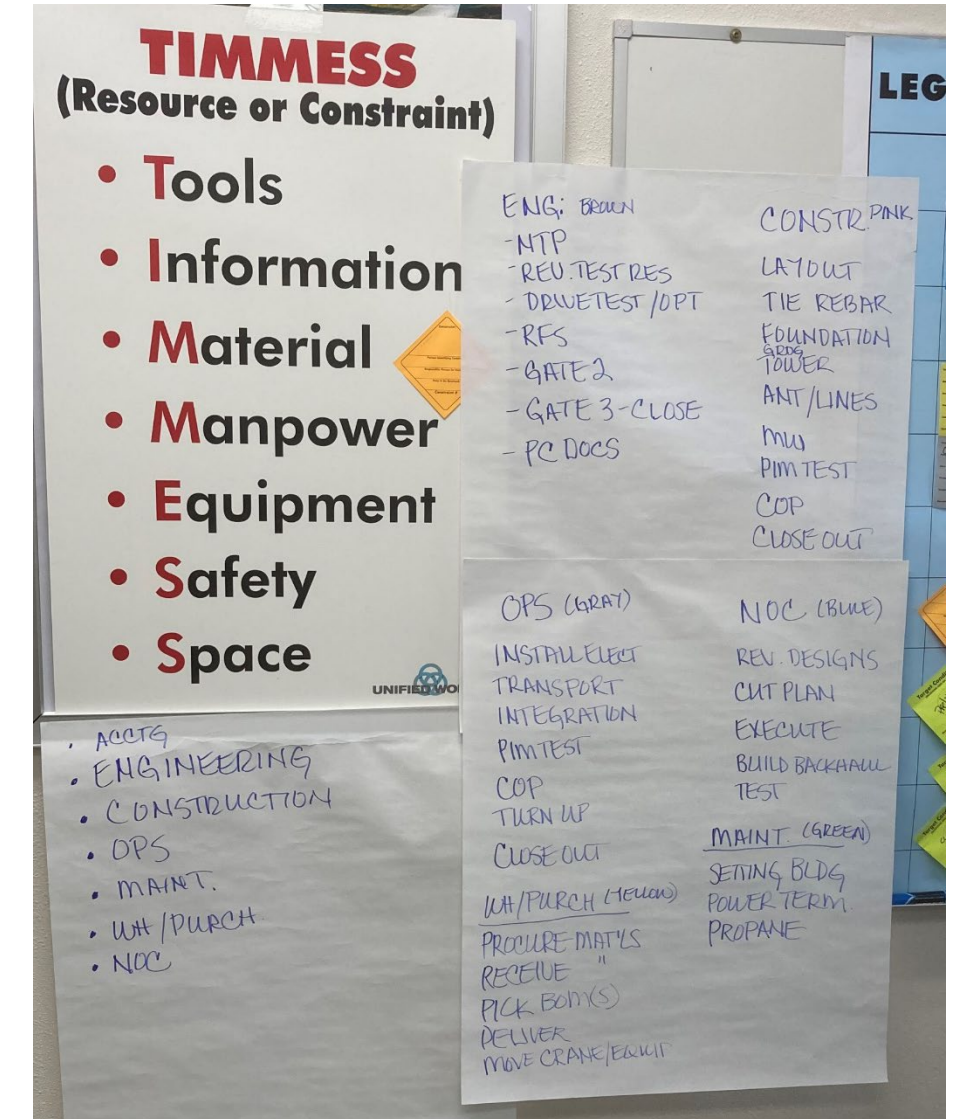 TIMMESS
(Resource or Constraint)
• Tools
• Information
• Material
• Manpower
• Equipment
• Safety
• Space
UNIFIED WO
LEG
ENG: BROWN
-NTP
-REV. TEST RES
- DRIVETEST/OPT
-RFS
-GATE 2
-GATE 3-CLOSE
- PC DOCS
CONSTR. PINK
LAYOUT
TIE REBAR
FOUNDATION
GRDG
TOWER
ANT/LINES
MW
PIM TEST
COP
CLOSE OUT
OPS (GRAY)
INSTALL ELECT
TRANSPORT
INTEGRATION
PIM TEST
COP
TURN UP
CLOSE OUT
WH/PURCH (YELLOW)
PROCURE MAT'LS
RECEIVE "
PICK BOM(S)
DELIVER
MOVE CRANE/EQUIP
NOC (BLUE)
REV. DESIGNS
CUT PLAN
EXECUTE
BUILD BACKHAUL
TEST
MAINT. (GREEN)
SETTING BLDG
POWER TERM.
PROPANE
• ACCTG
• ENGINEERING
• CONSTRUCTION
• OPS
• MAINT.
• WH/PURCH.
• NOC